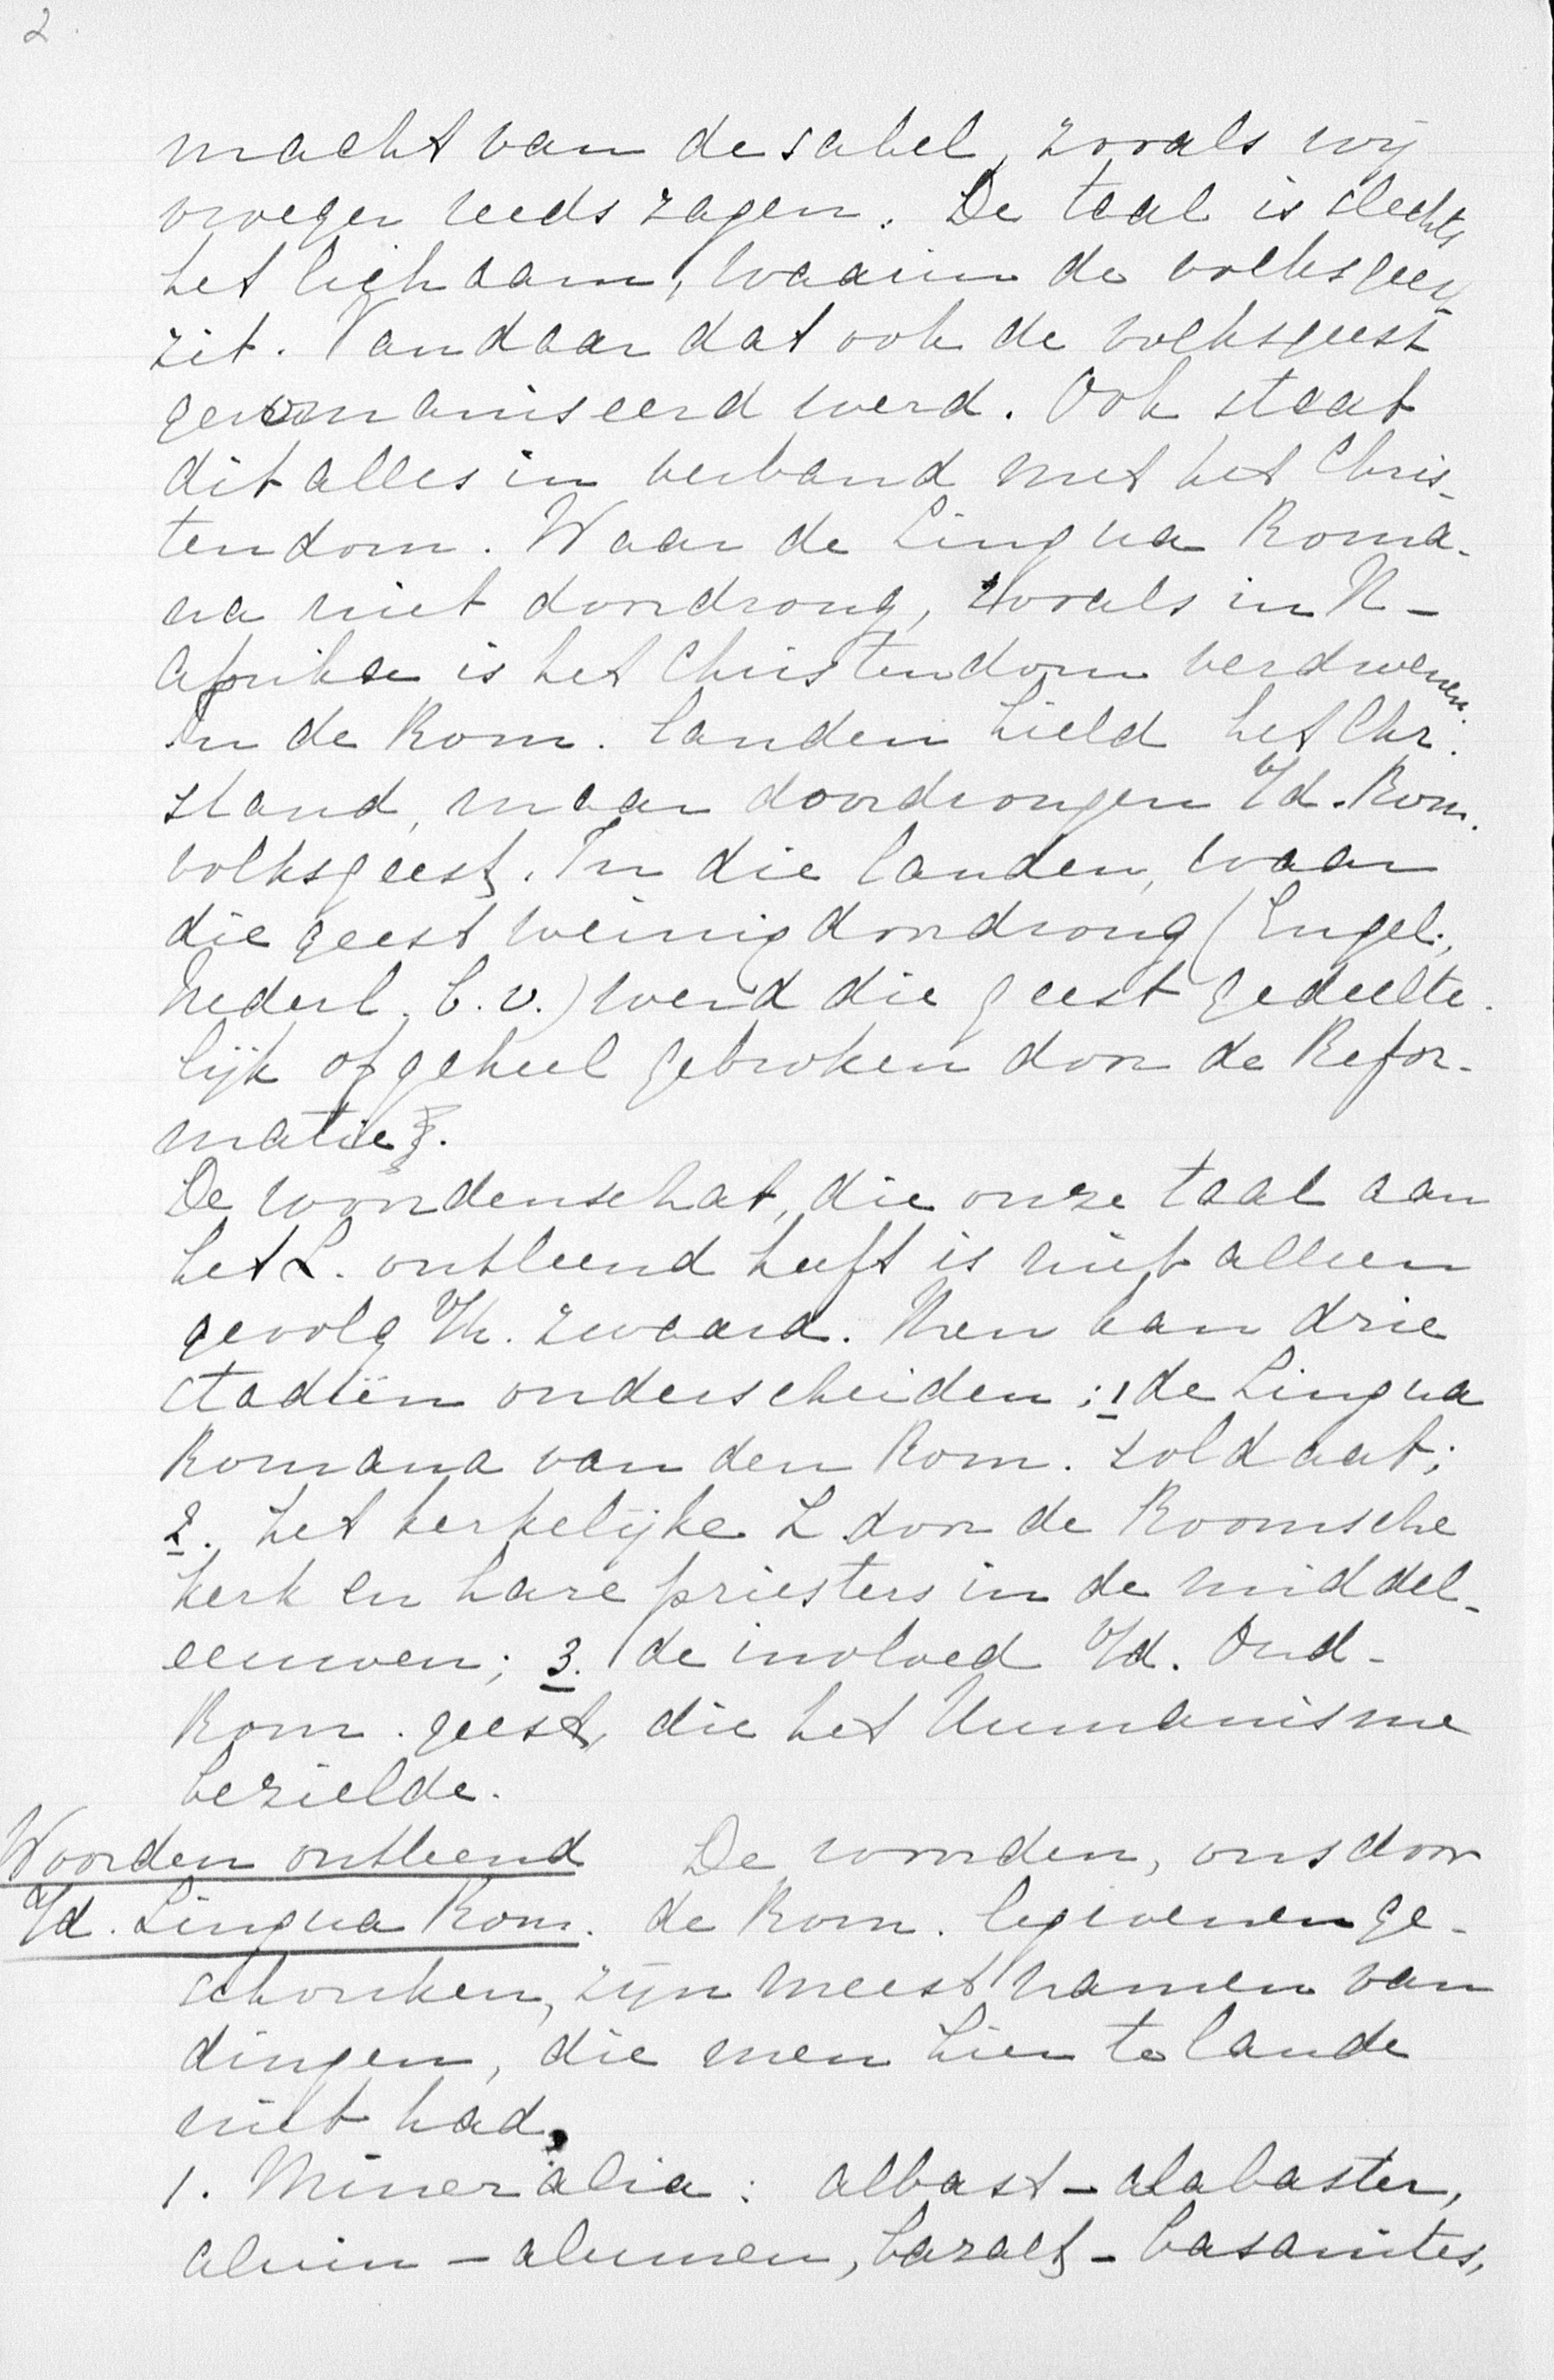 2
macht van de sabel, zooals wij
vroeger reeds zagen. De taal is slechts
het lichaam, waarin de volksgeest
zit. Vandaar dat ook de volksgeest
geromaniseerd werd. Ook staat
dit alles in verband met het Chris-
tendom. Waar de Lingua Roma-
na niet doordrong, zooals in N-
Afrika is het Christendom verdwenen.
In de Rom. landen hield het Chr.
stand, maar doordrongen v/d. Rom.
volksgeest. In die landen, waar
die geest weinig doordrong (Engel.,
Nederl. b.v.) werd die geest gedeelte-
lijk of geheel gebroken door de Refor-
matie.
De woordenschat, die onze taal aan
het L. ontleend heeft is niet alleen
gevolg v/h. zwaard. Men kan drie
stadiën onderscheiden: 1 de Lingua
Romana van den Rom. soldaat;
2. het kerkelijke L door de Roomsche
kerk en hare priesters in de middel-
eeuwen; 3. de invloed v/d. Oud-
Rom. geest, die het Humanisme
bezielde.
Woorden ontleend
v/d. Lingua Rom.
De woorden, ons door
de Rom. legioenen ge-
schonken, zijn meest namen van
dingen, die men hier te lande
niet had.
1. Mineralia: albast - alabaster,
aluin - alumen, bazalt - basanites,